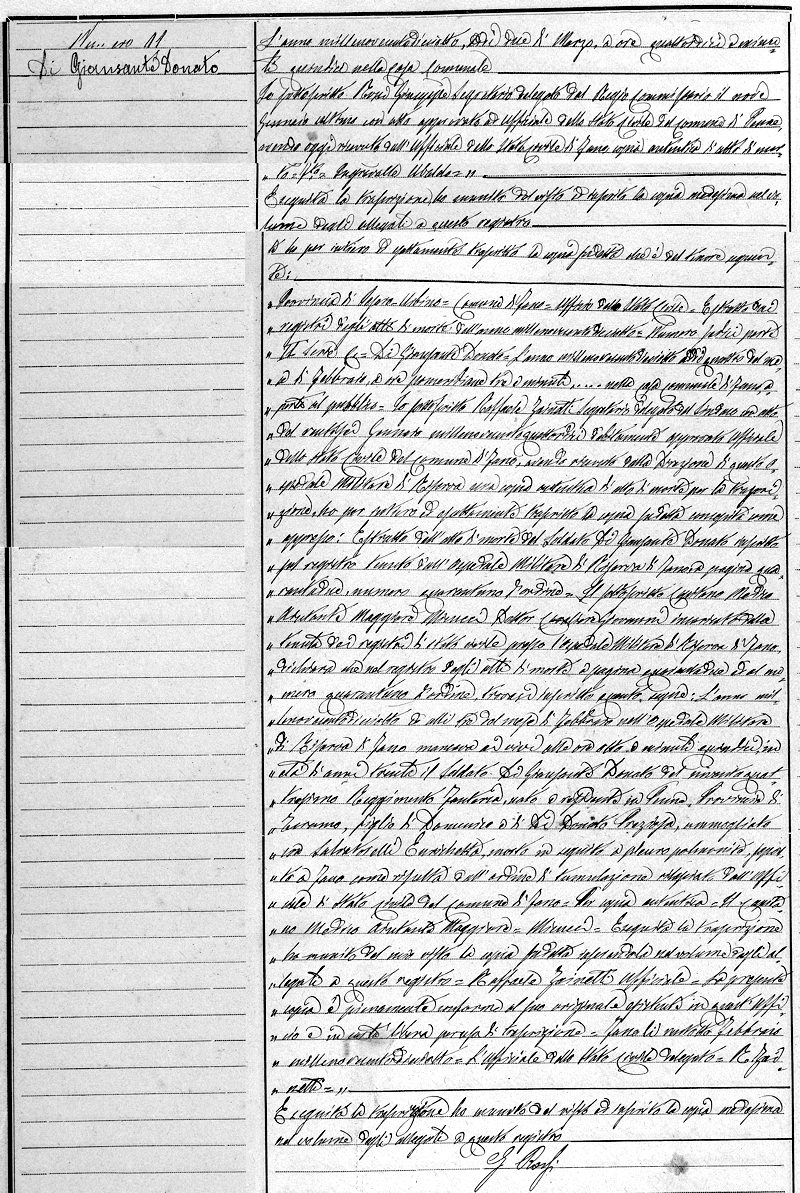 Numero 11
Di Giansante Donato
L'anno millenovecentodiciotto, addì due di Marzo, a ore quattordici e minu-
ti quindici nella casa comunale
Io sottoscritto Rossi Giuseppe Segretario delegato dal Regio Commissario il nove
Gennaio ultimo con atto approvato ad Ufficiale dello Stato Civile del comune di Penne,
avendo oggi ricevuto dall'Ufficiale dello Stato civile di Fano copia autentica di atto di mor-
Ubaldo = "
Eseguita la trascrizione, ho munito del visto ed inserito la copia medesima nel vo-
lume degli allegati a questo registro
e ho per intero ed esattamente trascritto la copia predetta che è del tenore seguen-
te:
" Provincia di Pesaro-Urbino = Comune di Fano = Ufficio dello Stato Civile = Estratto dai
" registri degli atti di morte dell'anno millenovecentodiciotto = Numero sedici parte
" II Serie C = Di Giansante Donato = L'anno millenovecentodiciotto addì quattro del me-
" se di Febbraio, a ore pomeridiane tre e minuti, .... nella casa comunale di Fano, a
" porte al pubblico = Io sottoscritto Raffaele Zainetti Segretario delegato dal Sindaco con atto
" del ventisei Gennaio millenovecentoquattordici debitamente approvato Ufficiale
" dello Stato Civile del Comune di Fano, avendo ricevuto dalla Direzione di questo O-
" spedale Militare di Riserva una copia autentica di atto di morte per la trascri-
" zione, ho per intero ed esattamente trascritto la copia predetta come
" appresso: Estratto dell'atto di morte del Soldato Di Giansante Donato inscritto
" nel registro tenuto dall'Ospedale Militare di Riserva di Fano a pagina qua-
" rantadue, numero quarantuno d'ordine = Il sottoscritto Capitano Medico
" Aiutante Maggiore Minucci Dottor Giovanni incaricato della
" tenuta dei registri di stato civile presso l'Ospedale Militare di Riserva di Fano,
" dichiara che nel registro degli atti di morte a pagina quarantadue ed al nu-
" mero quarantuno d'ordine, trovasi inscritto quanto segue: L'anno mil-
" lenovecentodiciotto ed alli tre del mese di Febbraio nell'Ospedale Militare
" di Riserva di Fano mancava ai vivi alle ore otto e minuti quindici, in
" età di anni trenta il Soldato Di Giansante Donato del
" Reggimento Fanteria, nato e residente in Penne, Provincia di
" Teramo, figlio di Domenico e di Di Donato Preziosa, ammogliato
" con Salvatorelli Enrichetta, morto in seguito a pleuro polmonite, sepol-
" to a Fano come risulta dall'ordine di tumulazione rilasciato dall'Uffi-
" ciale di Stato civile del comune di Fano = Per copia autentica = Il Capita-
" no Medico Aiutante Maggiore = Minucci = Eseguita la trascrizione
" ho munito del mio visto la copia predetta inserendola nel volume degli al-
" legati a questo registro = Raffaele Zainetti Ufficiale = La presente
" copia è pienamente conforme al suo originale esistente in quest'Uffi-
" cio e in carta libera per uso di trascrizione = Fano li ventotto Febbraio
" millenovecentodiciotto = L'Ufficiale dello Stato Civile delegato = R. Zai-
" netti = "
Eseguita la trascrizione ho munito del visto ed inserito la copia medesima
nel volume degli allegati a questo registro
G Rossi